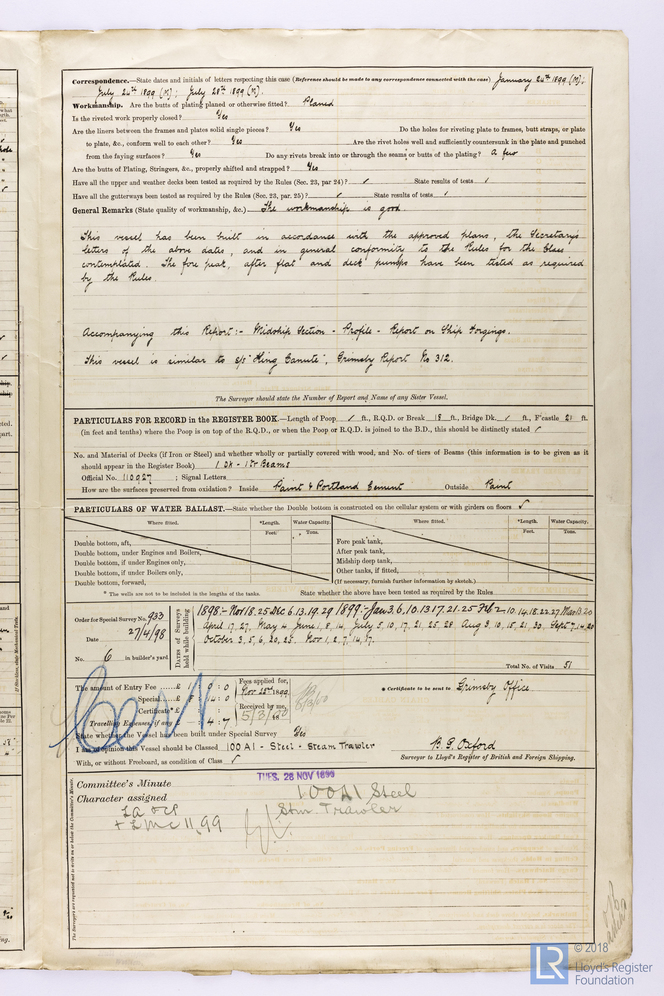 Correspondence.—State dates and initials of letters respecting this case (Reference should be made to any correspondence connected with the case) January 24th 1899 (M);
July 24th 1899 (M); July 28th 1899 (M).
Workmanship. Are the butts of plating planed or otherwise fitted? Planed
Is the riveted work properly closed? Yes
Are the liners between the frames and plates solid single pieces? Yes Do the holes for riveting plate to frames, butt straps, or plate
to plate, &c., conform well to each other? Yes Are the rivet holes well and sufficiently countersunk in the plate and punched
from the faying surfaces? Yes Do any rivets break into or through the seams or butts of the plating? A few
Are the butts of Plating, Stringers, &c., properly shifted and strapped? Yes
Have all the upper and weather decks been tested as required by the Rules (Sec. 23, par 24)? ✓ State results of tests ✓
Have all the gutterways been tested as required by the Rules (Sec. 23, par. 25)? ✓ State results of tests ✓
General Remarks (State quality of workmanship, &c.) The workmanship is good
This vessel has been built in accordance with the approved plans, the Secretary's
letters of the above dates, and in general conformity to the Rules for the Class
contemplated. The fore peak, after flat and deck pumps have been tested as required
by the Rules.
Accompanying this Report:- Midship Section - Profile - Report on Ship Forgings.
This vessel is similar to S/S "King Canute", Grimsby Report No 312.
The Surveyor should state the Number of Report and Name of any Sister Vessel.
PARTICULARS FOR RECORD in the REGISTER BOOK.—Length of Poop ✓ ft., R.Q.D. or Break 18 ft., Bridge Dk. ✓ ft., F'castle 21 ft.
(in feet and tenths) where the Poop is on top of the R.Q.D., or when the Poop or R.Q.D. is joined to the B.D., this should be distinctly stated ✓
No. and Material of Decks (if Iron or Steel) and whether wholly or partially covered with wood, and No. of tiers of Beams (this information is to be given as it
should appear in the Register Book) 1 Dk - 1 Tr Beams
Official No. 110927 ; Signal Letters
How are the surfaces preserved from oxidation? Inside Paint & Portland Cement Outside Paint
PARTICULARS OF WATER BALLAST.—State whether the Double bottom is constructed on the cellular system or with girders on floors ✓
Where fitted. *Length. Water Capacity. Where fitted. *Length. Water Capacity.
Feet. Tons. Feet. Tons.
Double bottom, aft, Fore peak tank,
Double bottom, under Engines and Boilers, After peak tank,
Double bottom, if under Engines only, Midship deep tank,
Double bottom, if under Boilers only, Other tanks, if fitted,
Double bottom, forward, (If necessary, furnish further information by sketch.)
* The wells are not to be included in the lengths of the tanks. State whether the above have been tested as required by the Rules
Order for Special Survey No. 933
Date 27/4/98
No. 6 in builder's yard
DATES of Surveys held while building
1898:- Nov 18. 25 Dec 6. 13. 19. 29 1899:- Jan 3. 6. 10. 13. 17. 21. 25 Feb 2. 10. 14. 18. 22. 27 Mar 13. 20
April 17. 27. May 4. June 1. 8. 14. July 5. 10. 17. 21. 25. 28. Aug 3. 10. 15. 21. 30. Sept 7. 14. 20
October 3. 5. 6. 20. 25. Nov 1. 2. 7. 14. 17.
Total No. of Visits 51
The amount of Entry Fee £ 1 : 0 : 0
Special £
Certificate*
Travelling Expenses, if any £ : 4 : 7
Fees applied for,
Nov 25th 1899
Received by me,
5/3/00
6/3/00
* Certificate to be sent to Grimsby Office
State whether the Vessel has been built under Special Survey Yes
I am of opinion this Vessel should be Classed 100 A1 - Steel - Steam Trawler
With, or without Freeboard, as condition of Class ✓
B. G. Oxford
Surveyor to Lloyd's Register of British and Foreign Shipping.
Committee's Minute
TUES. 28 NOV 1899
Character assigned
100A1 Steel
Stm. Trawler
LA & CP
+ LMC 11,99
The Surveyors are requested not to write on or below the Committee's Minute.
© 2018
Lloyd's Register
Foundation
LR